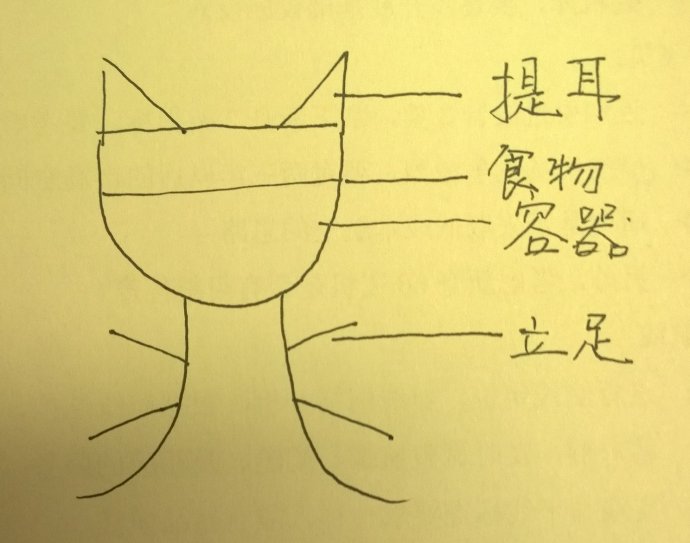 提耳
食物
容器
立足